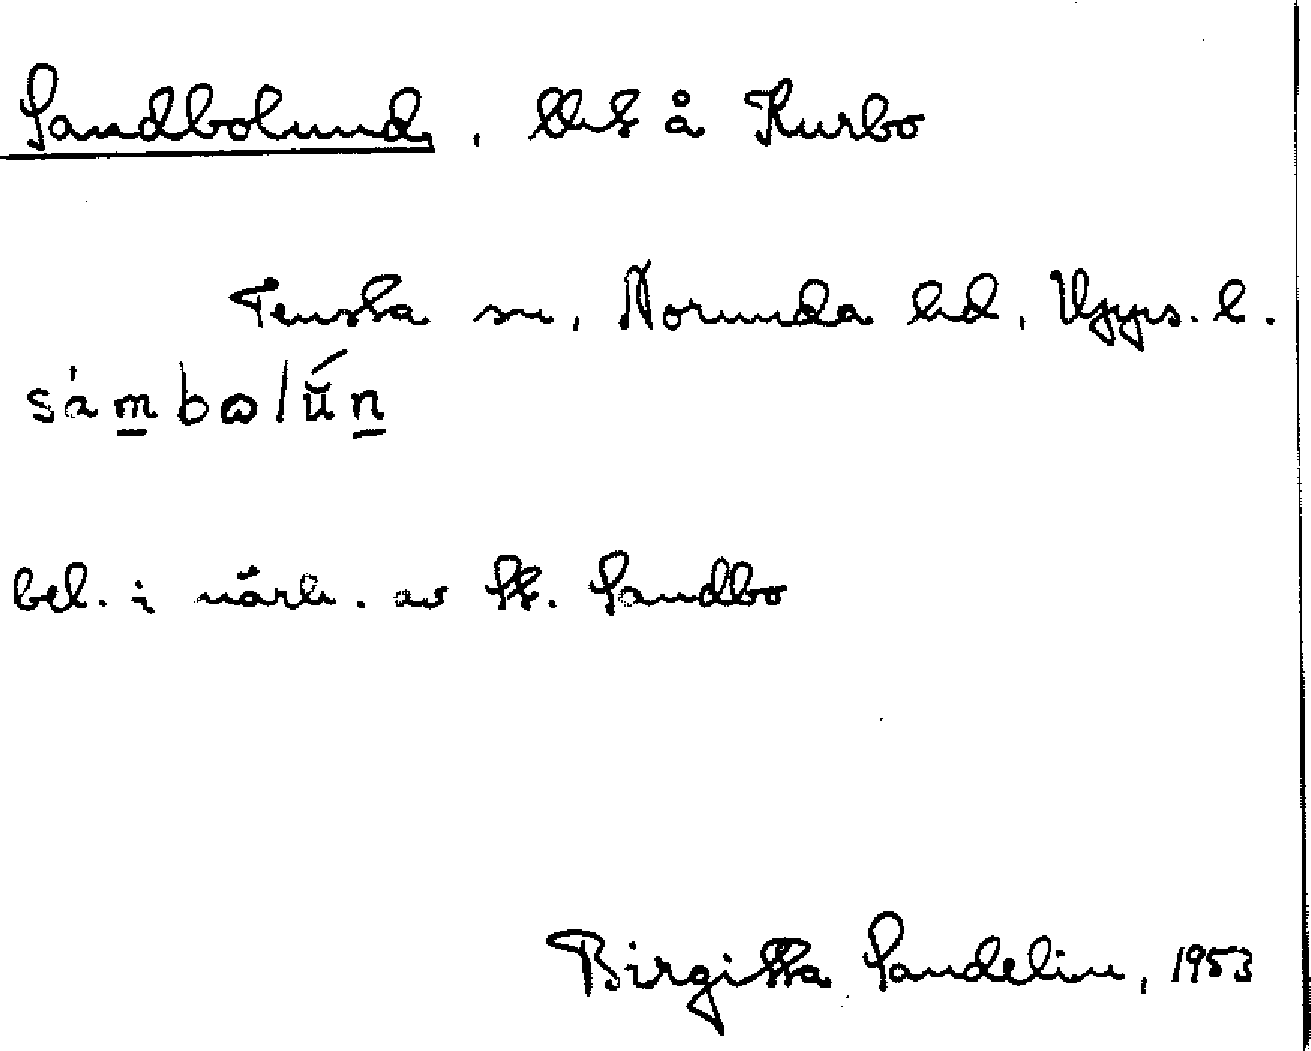 Sandbolund, lht å Kurbo
Tensta sn, Norunda hd, Upps. l.
sámbωlŭ́n
bel. i närh. av St. Sandbo
Birgitta Sandelin, 1953